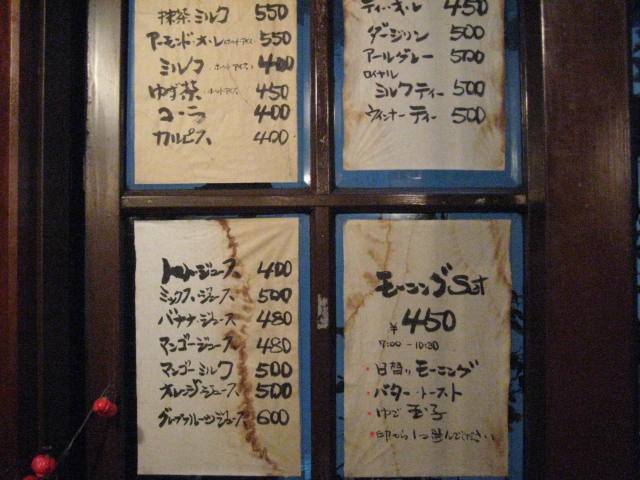 抹茶・ミルク 550
アーモンド・オ・レ(ホット・アイス) 550
ミルク (ホット・アイス) 400
ゆず茶 (ホット・アイス) 450
コーラ 400
カルピス 400
ティ・オ・レ 450
ダージリン 500
アールグレー 500
ロイヤル
ミルクティー 500
ウィンナーティー 500
トマト・ジュース 400
ミックス・ジュース 500
バナナ・ジュース 480
マンゴージュース 480
マンゴーミルク 500
オレンジジュース 500
グレープフルーツジュース 600
モーニングSet
¥450
7:00-10:30
・日替りモーニング
・バター・トースト
・ゆで玉子
・印から1つ選んでください